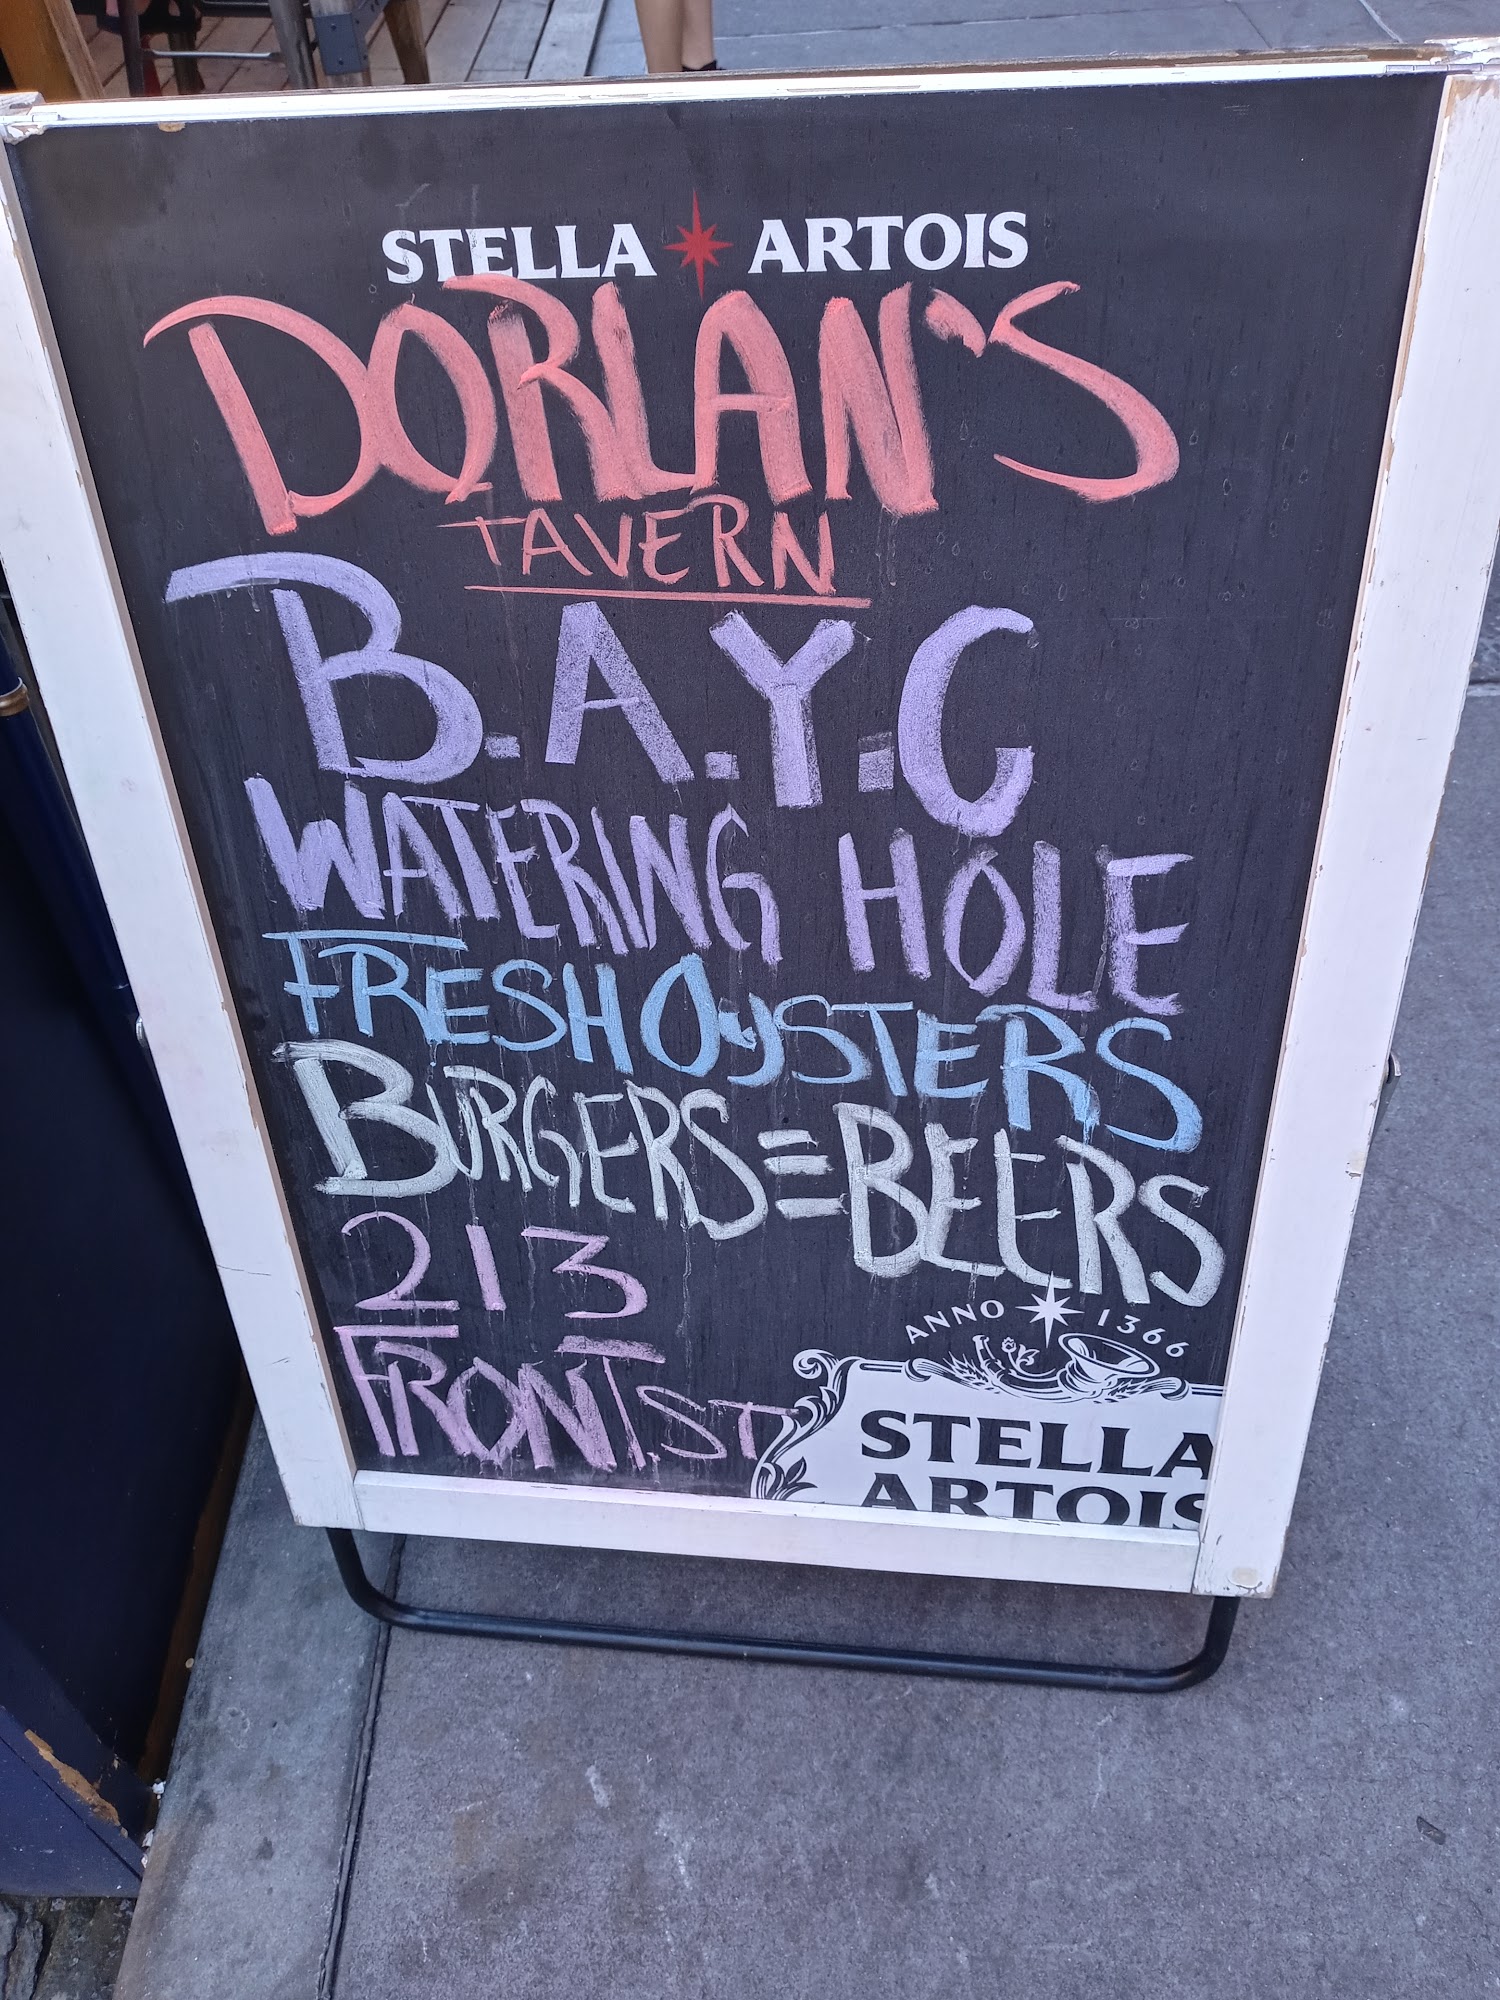 STELLA ARTOIS
DORLAN'S
TAVERN
B.A.Y.C
WATERING HOLE
FRESH OySTERS
BURGERS = BEERS
213
FRONT.ST
ANNO 1366
STELLA
ARTOIS